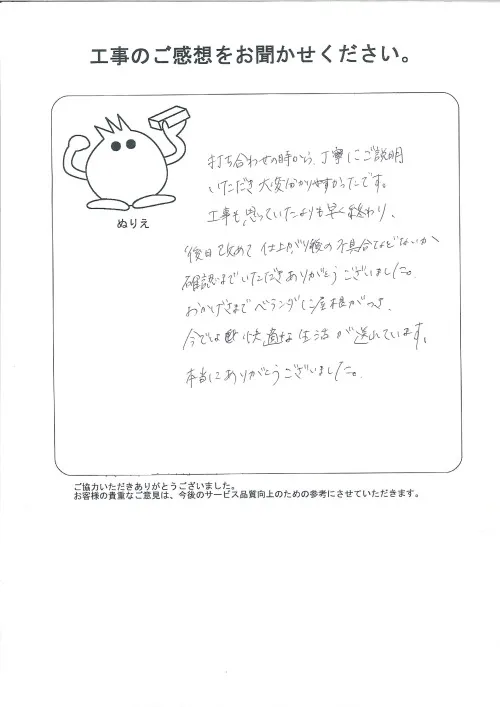 工事のご感想をお聞かせください。
ぬりえ
打ち合わせの時から、丁寧にご説明
いただき大変わかりやすかったです。
工事も思っていたよりも早く終わり、
後日改めて仕上がり後の不具合などないか
確認までいただきありがとうございました。
おかげさまでベランダに屋根がつき、
今では快適な生活が送れています。
本当にありがとうございました。
ご協力いただきありがとうございました。
お客様の貴重なご意見は、今後のサービス品質向上のための参考にさせていただきます。